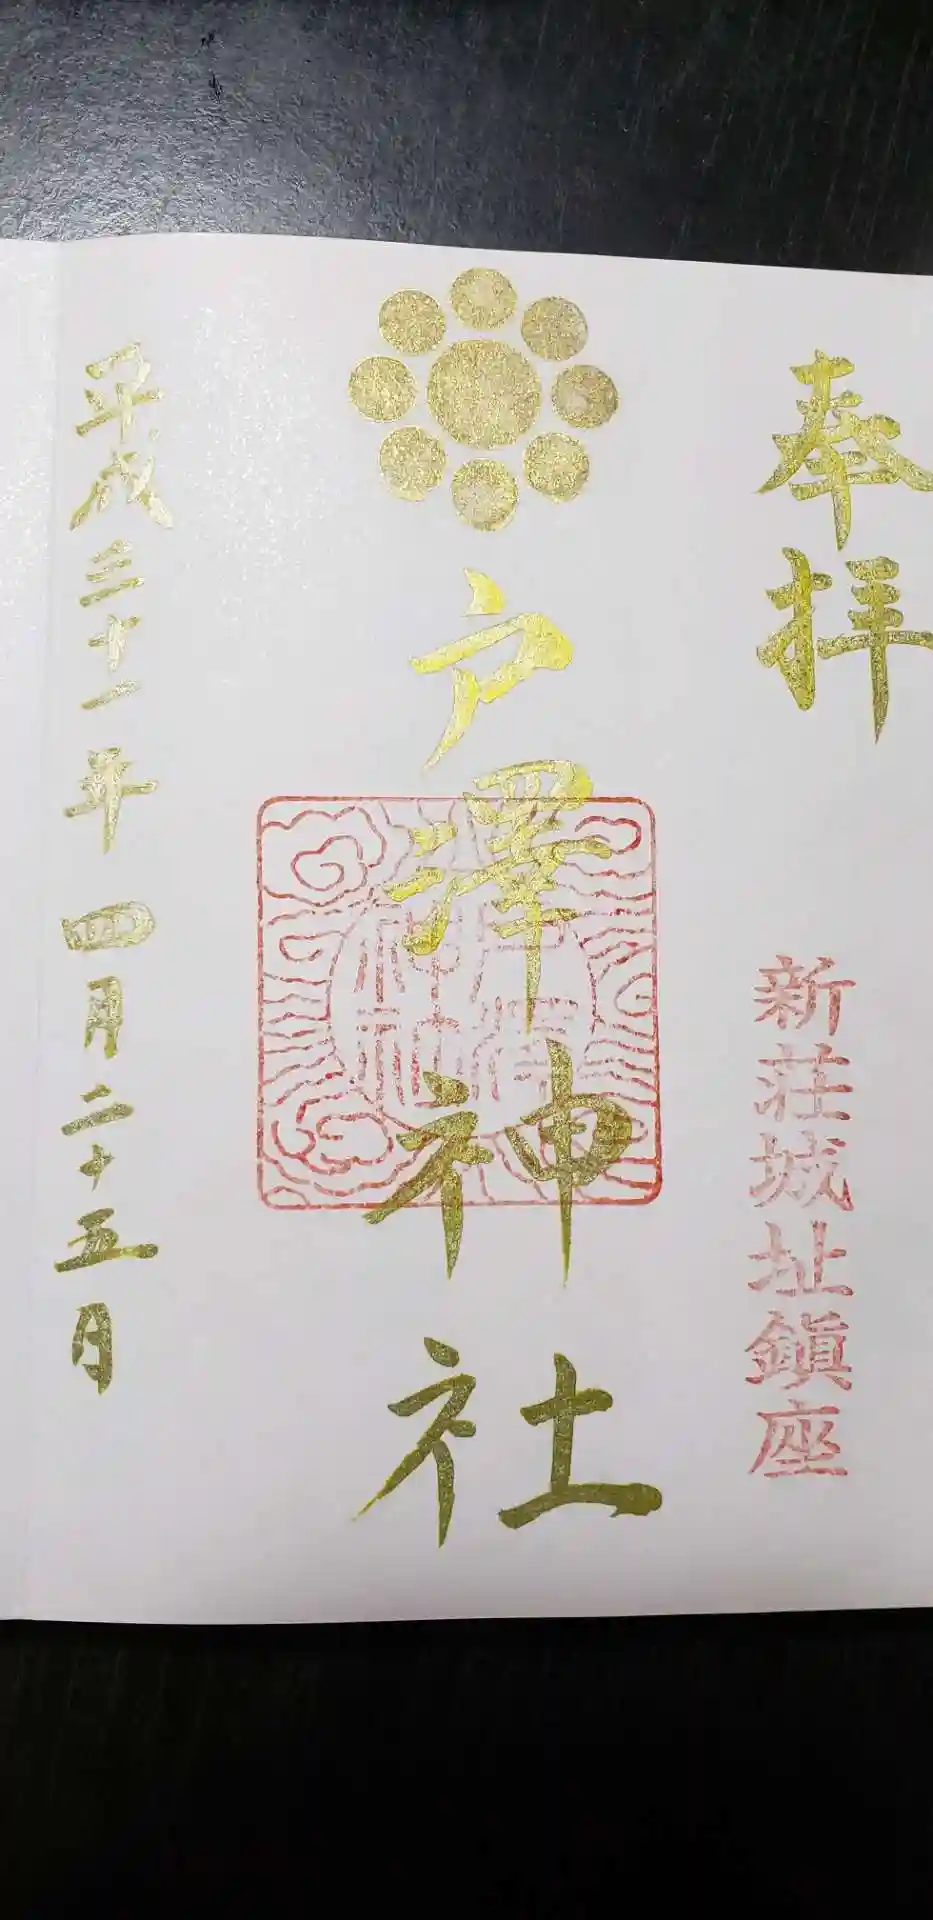 奉拝
新莊城址鎮座
戸澤神社
平成三十一年四月二十五日